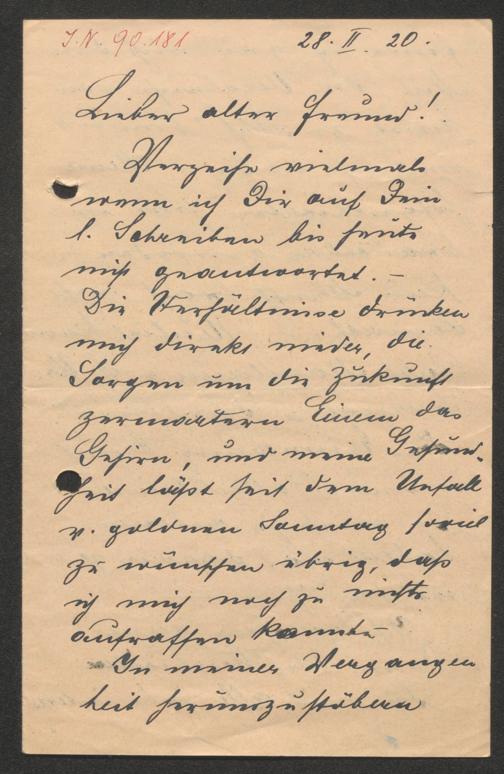 J.N. 90.181
28. II. 20.
Lieber alter Freund!
Verzeihe vielmals
wenn ich Dir auf Dein
l. Schreiben bis heute
nicht geantwortet. –
Die Verhältnisse drücken
mich direkt nieder, die
Sorgen um die Zukunft
zermartern Einem das
Gehirn, und meine Gesund-
heit läßt seit dem Unfall
v. goldnen Sonntag soviel
zu wünschen übrig, daß
ich mich noch zu nichts
aufraffen konnte
In meiner Vergangen
heit herumzustöbern